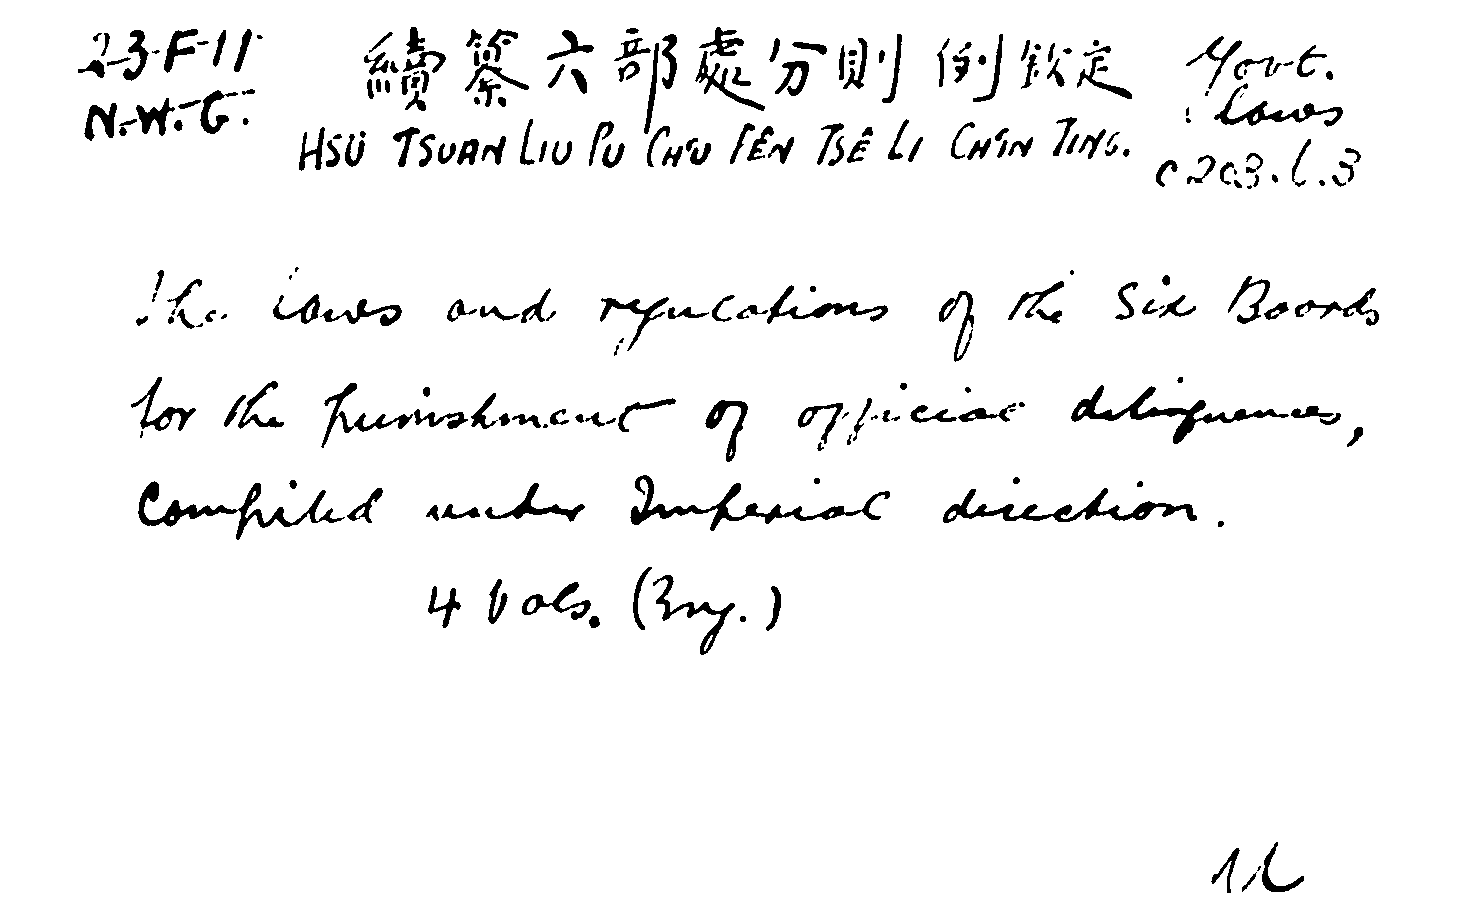 23-F-11
N.W.G.
續纂六部處分則例欽定
HSÜ TSUAN LIU PU CHU FÊN TSÊ LI CHIN TING.
Govt.
Laws
C 203.L.3
The laws and regulations of the Six Boards
for the punishment of official delinquencies,
Compiled under Imperial direction.
4 Vols. (Eng.)